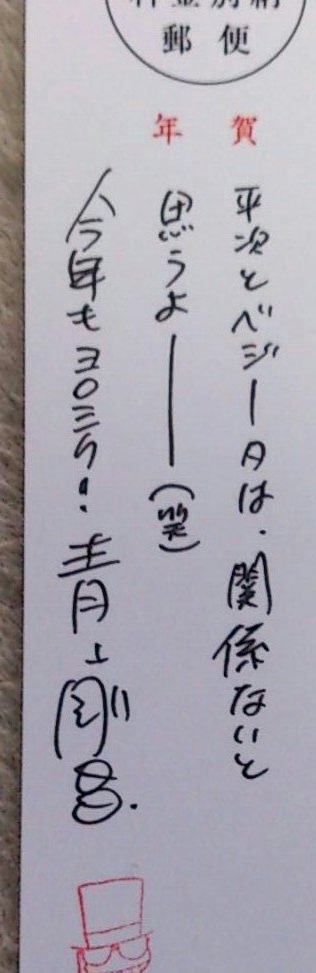 料金別納
郵便
年賀
平次とベジータは、関係ないと
思うよー(笑)
今年もヨロシク!青山剛昌.